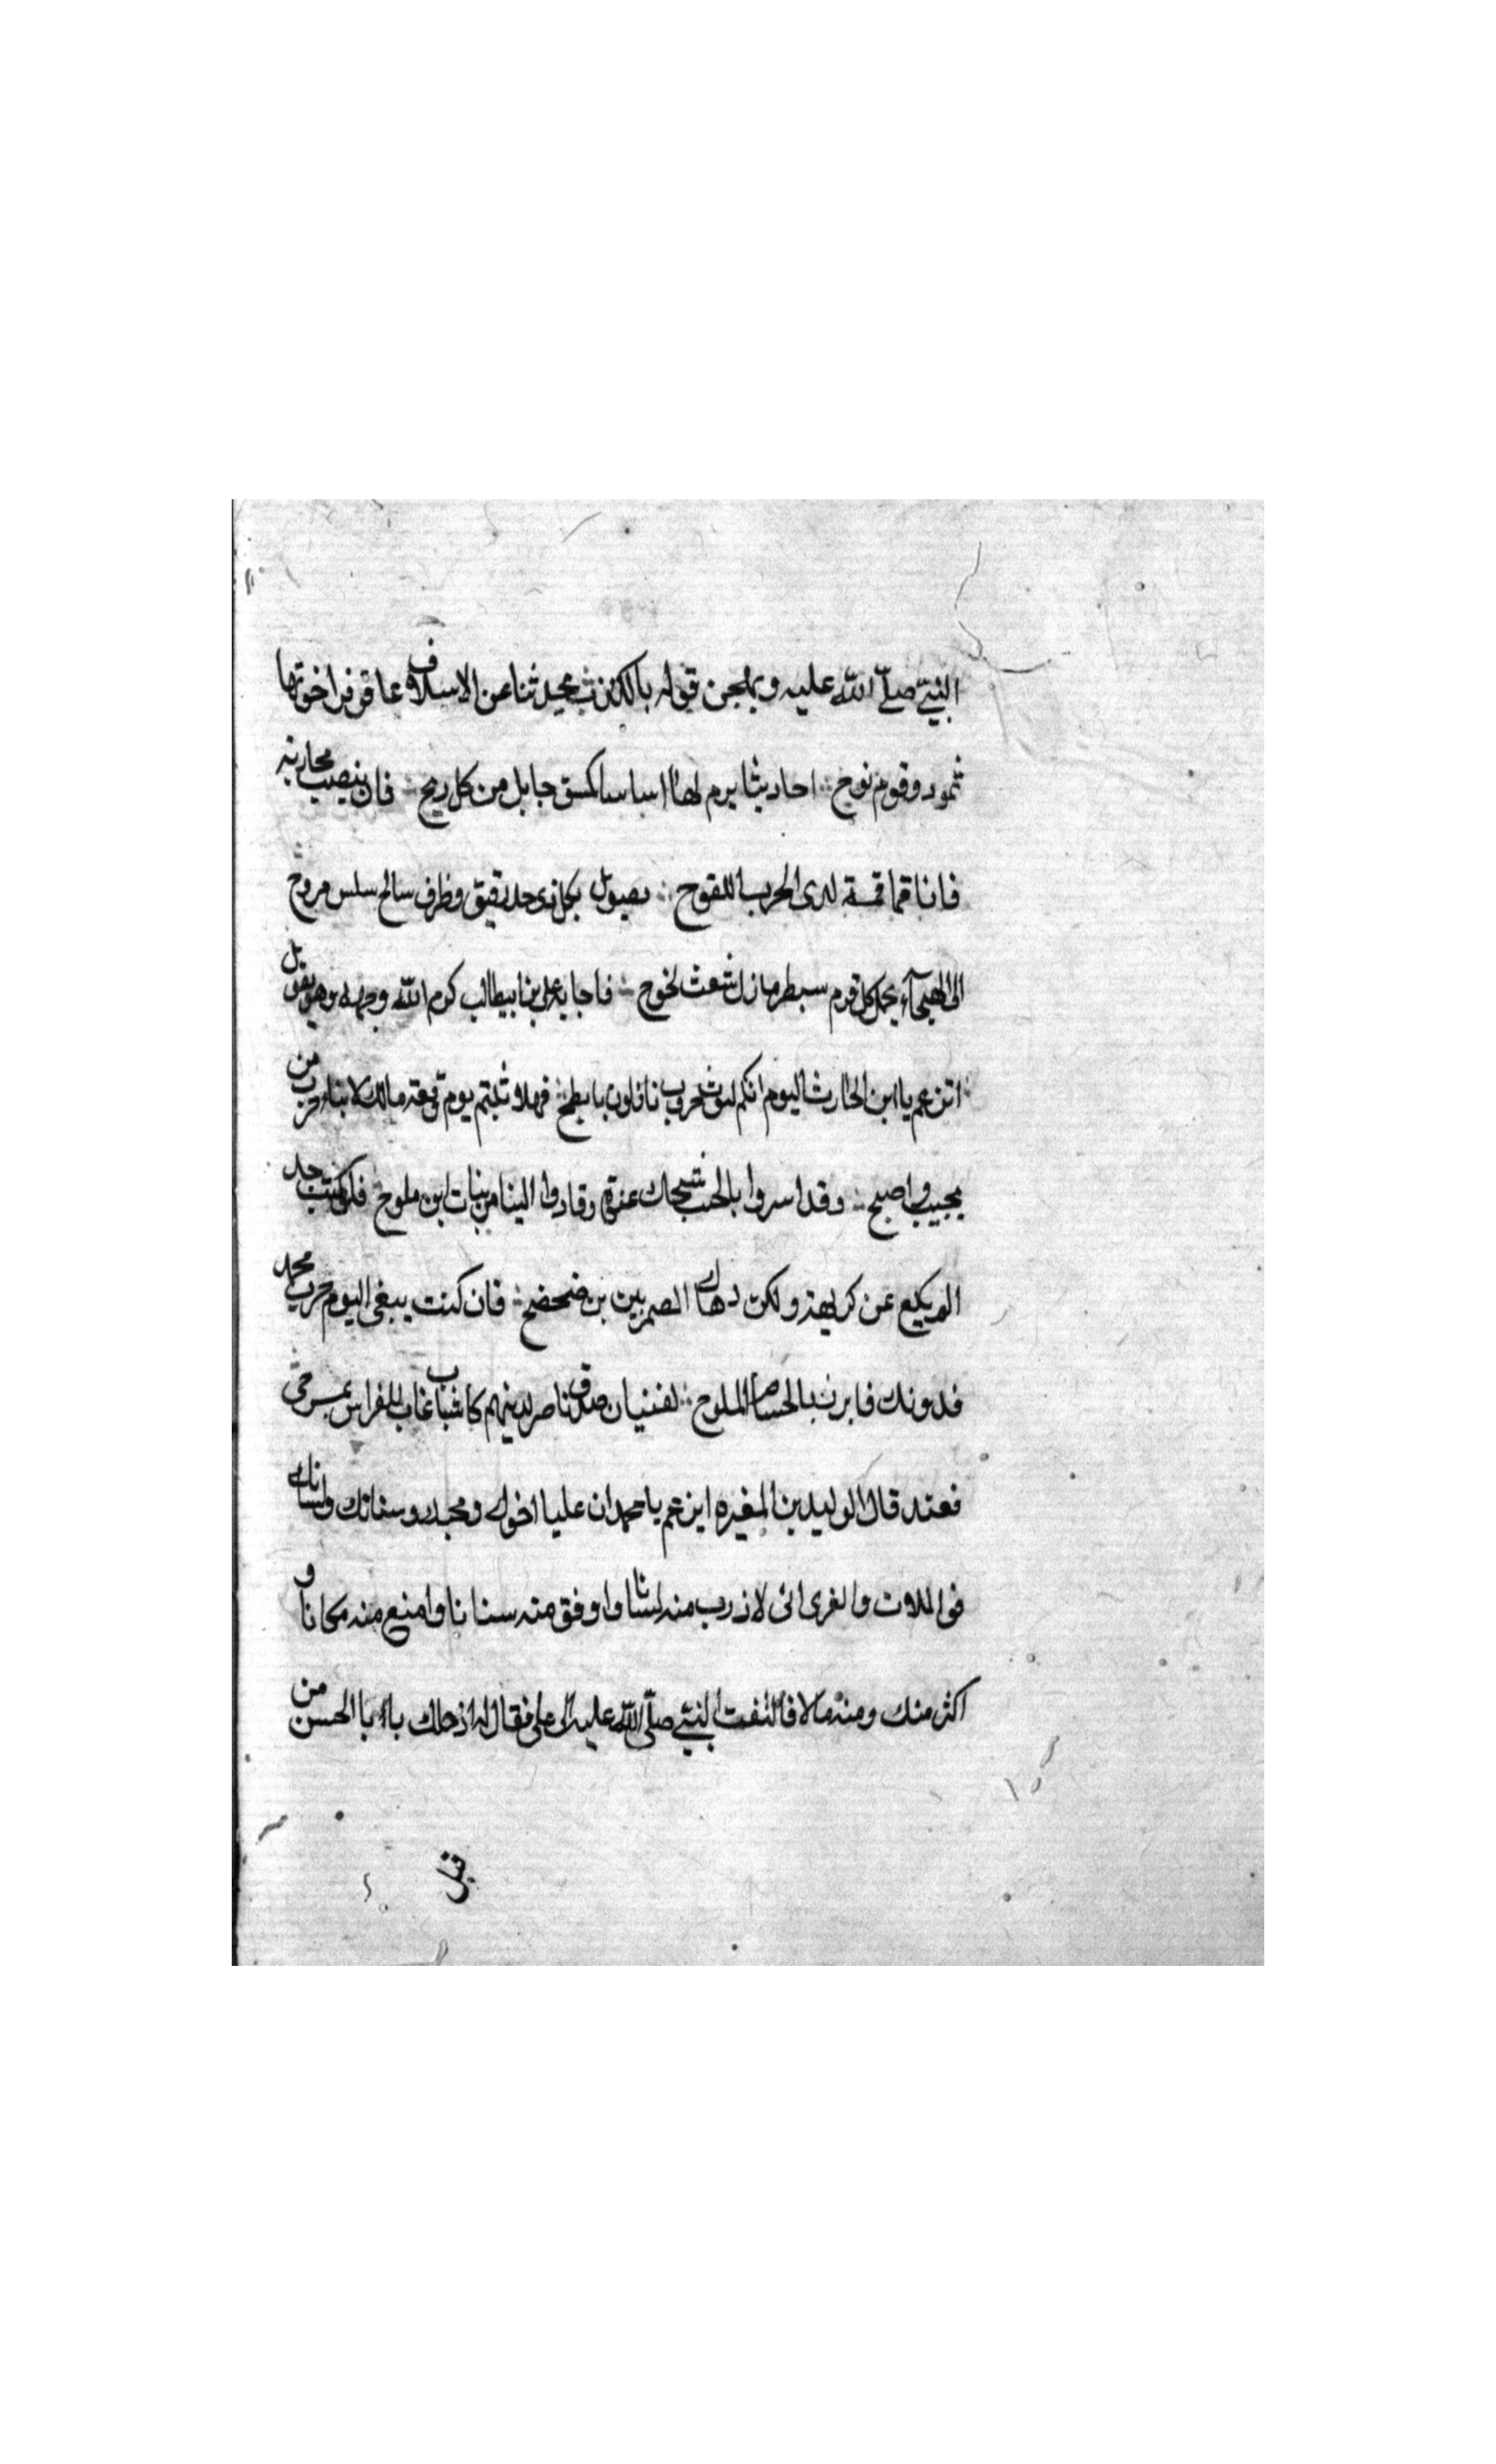 النبي صلّى اللّه عليه و يمجن قوله بالكذب يحدثنا عن الاسلاف عاقر فرا خوتها
ثمود وقوم نوح ∴ احاديثا يرم لها اساسا كسق جابل من كل ريح ∴ فان ينصب محاربه
فانا قماقمة لدى الحرب اللقوح ∴ يصول بكل ذى حد رقيق وظرف سالح سلس مروح
الى الهيجآء يحمل كل قرم سبطر مازل شعث لخوح ∴ فاجابه على بن ابيطالب كرم اللّه وجهه وهو يقول
اتزعم يا ابن الحارث اليوم انكم ليوث حروب نازلون بابطح ∴ فهلا ثبتم يوم وقعة مالك لابناء حرب من
مجيب واصبح ∴ وقد اسروا بالحب شبحاك عنوة وقادوا الينا من بنات ابن ملوح ∴ فلو كنت جد
المر يكيع عن كريهة ولكن دهاك الصمر بين بن ضحضح ∴ فان كنت يبغى اليوم حرب محمد
فدونك فابرز بالحسام الملوح ∴ لفتيان صدق ناصر لدينهم كاشباب غاب للفراس بمسرحى
فعند قال الوليد بن المغيره اين عم يا محمد ان عليا اخوك ومحبك وسنانك ولسانك
فو اللات والعزى انى لاذرب منه لسانا واوفق منه سنانا وامنع منه مكانا و
اكثر منك ومنه مالا فالتفت النبي صلّى اللّه عليه الى على فقال له اذحلك يا ابا الحسن من
قبل